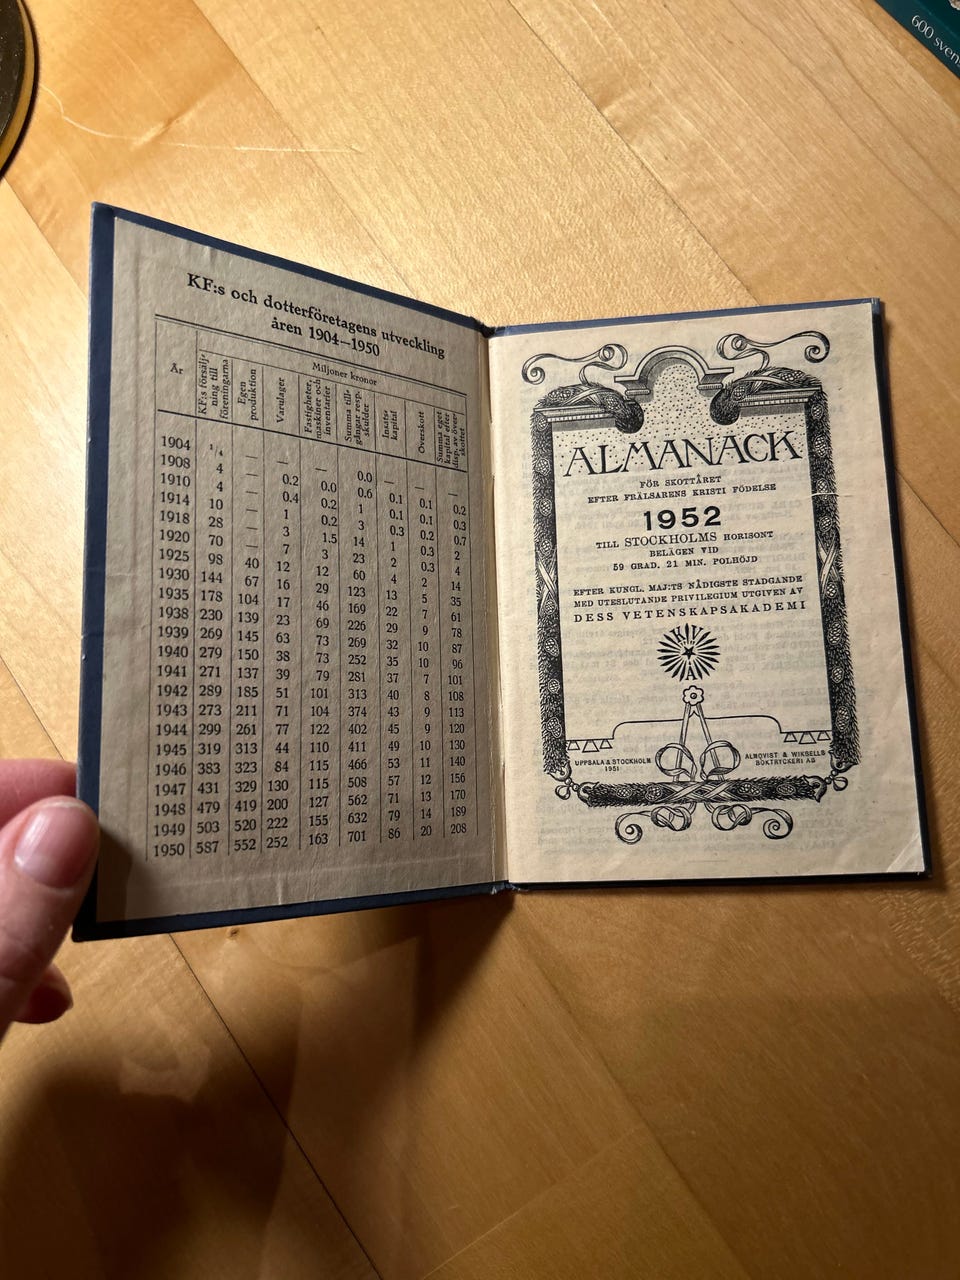 KF:s och dotterföretagens utveckling
åren 1904—1950
Miljoner kronor
År
KF:s försälj-
ning till
föreningarna
Egen
produktion
Varulager
Fastigheter,
maskiner och
inventarier
Summa till-
gångar resp.
skulder
Insats-
kapital
Överskott
Summa eget
kapital efter
disp. av över-
skottet
1904 1/4 — — — 0.0 — — —
1908 4 — 0.2 0.0 0.6 0.1 0.1 0.2
1910 4 — 0.4 0.2 1 0.1 0.1 0.3
1914 10 — 1 0.2 3 0.3 0.2 0.7
1918 28 — 3 1.5 14 1 0.3 2
1920 70 — 7 3 23 2 0.3 4
1925 98 40 12 12 60 4 2 14
1930 144 67 16 29 123 13 5 35
1935 178 104 17 46 169 22 7 61
1938 230 139 23 69 226 29 9 78
1939 269 145 63 73 269 32 10 87
1940 279 150 38 73 252 35 10 96
1941 271 137 39 79 281 37 7 101
1942 289 185 51 101 313 40 8 108
1943 273 211 71 104 374 43 9 113
1944 299 261 77 122 402 45 9 120
1945 319 313 44 110 411 49 10 130
1946 383 323 84 115 466 53 11 140
1947 431 329 130 115 508 57 12 156
1948 479 419 200 127 562 71 13 170
1949 503 520 222 155 632 79 14 189
1950 587 552 252 163 701 86 20 208
ALMANACK
FÖR SKOTTÅRET
EFTER FRÄLSARENS KRISTI FÖDELSE
1952
TILL STOCKHOLMS HORISONT
BELÄGEN VID
59 GRAD. 21 MIN. POLHÖJD
EFTER KUNGL. MAJ:TS NÅDIGSTE STADGANDE
MED UTESLUTANDE PRIVILEGIUM UTGIVEN AV
DESS VETENSKAPSAKADEMI
K V
A
UPPSALA & STOCKHOLM
1951
ALMQVIST & WIKSELLS
BOKTRYCKERI AB
600 sven